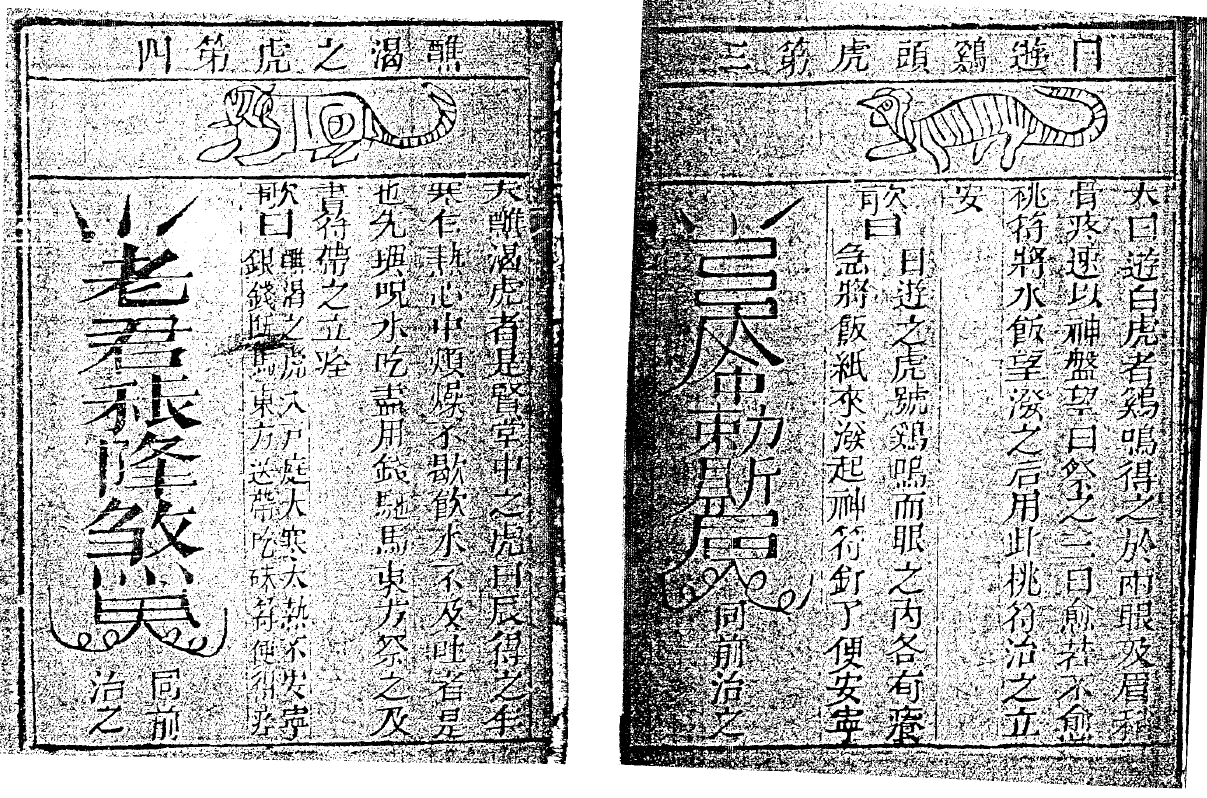 日遊鷄頭虎第三
夫曰遊白虎者鷄鳴得之於兩眼及眉
骨疼速以神盤望日祭之三日愈若不愈
桃符將水飯望潑之后用此桃符治之立
安
歌曰
日遊之虎號鷄鳴而眼之内各有瘡
急將飯紙來潑起神符釘了便安寧
同前治之
醮渴之虎第四
夫醮渴虎者是賢堂中之虎日辰得之年
寒作熱心中煩燥不歇飲水不及吐者是
也先理呪水吃盡用錢馳馬東方祭之及
書符帶之立痊
歌曰
醮渴之虎入戸庭大寒大熱不安寧
銀錢馳馬東方送帶吃硃符便得痊
老君
煞
同前
治之